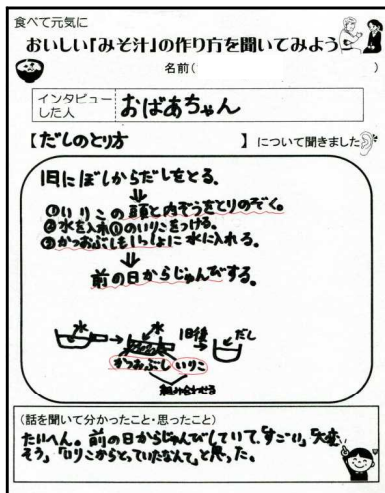 食べて元気に
おいしい「みそ汁」の作り方を聞いてみよう
名前( )
インタビュー
した人
おばあちゃん
【だしのとり方 】について聞きました
1日にぼしからだしをとる。
①いりこの頭と内ぞうをとりのぞく。
②水を入れ①のいりこをつける。
③かつおぶしもいっしょに水に入れる。
前の日からじゅんびする。
水
水
1日後
だし
かつおぶし いりこ
組み合わせる
(話を聞いて分かったこと・思ったこと)
たいへん。前の日からじゅんびしていて、「すごーい」「大変
そう」「いりこからとっていたなんて」と思った。